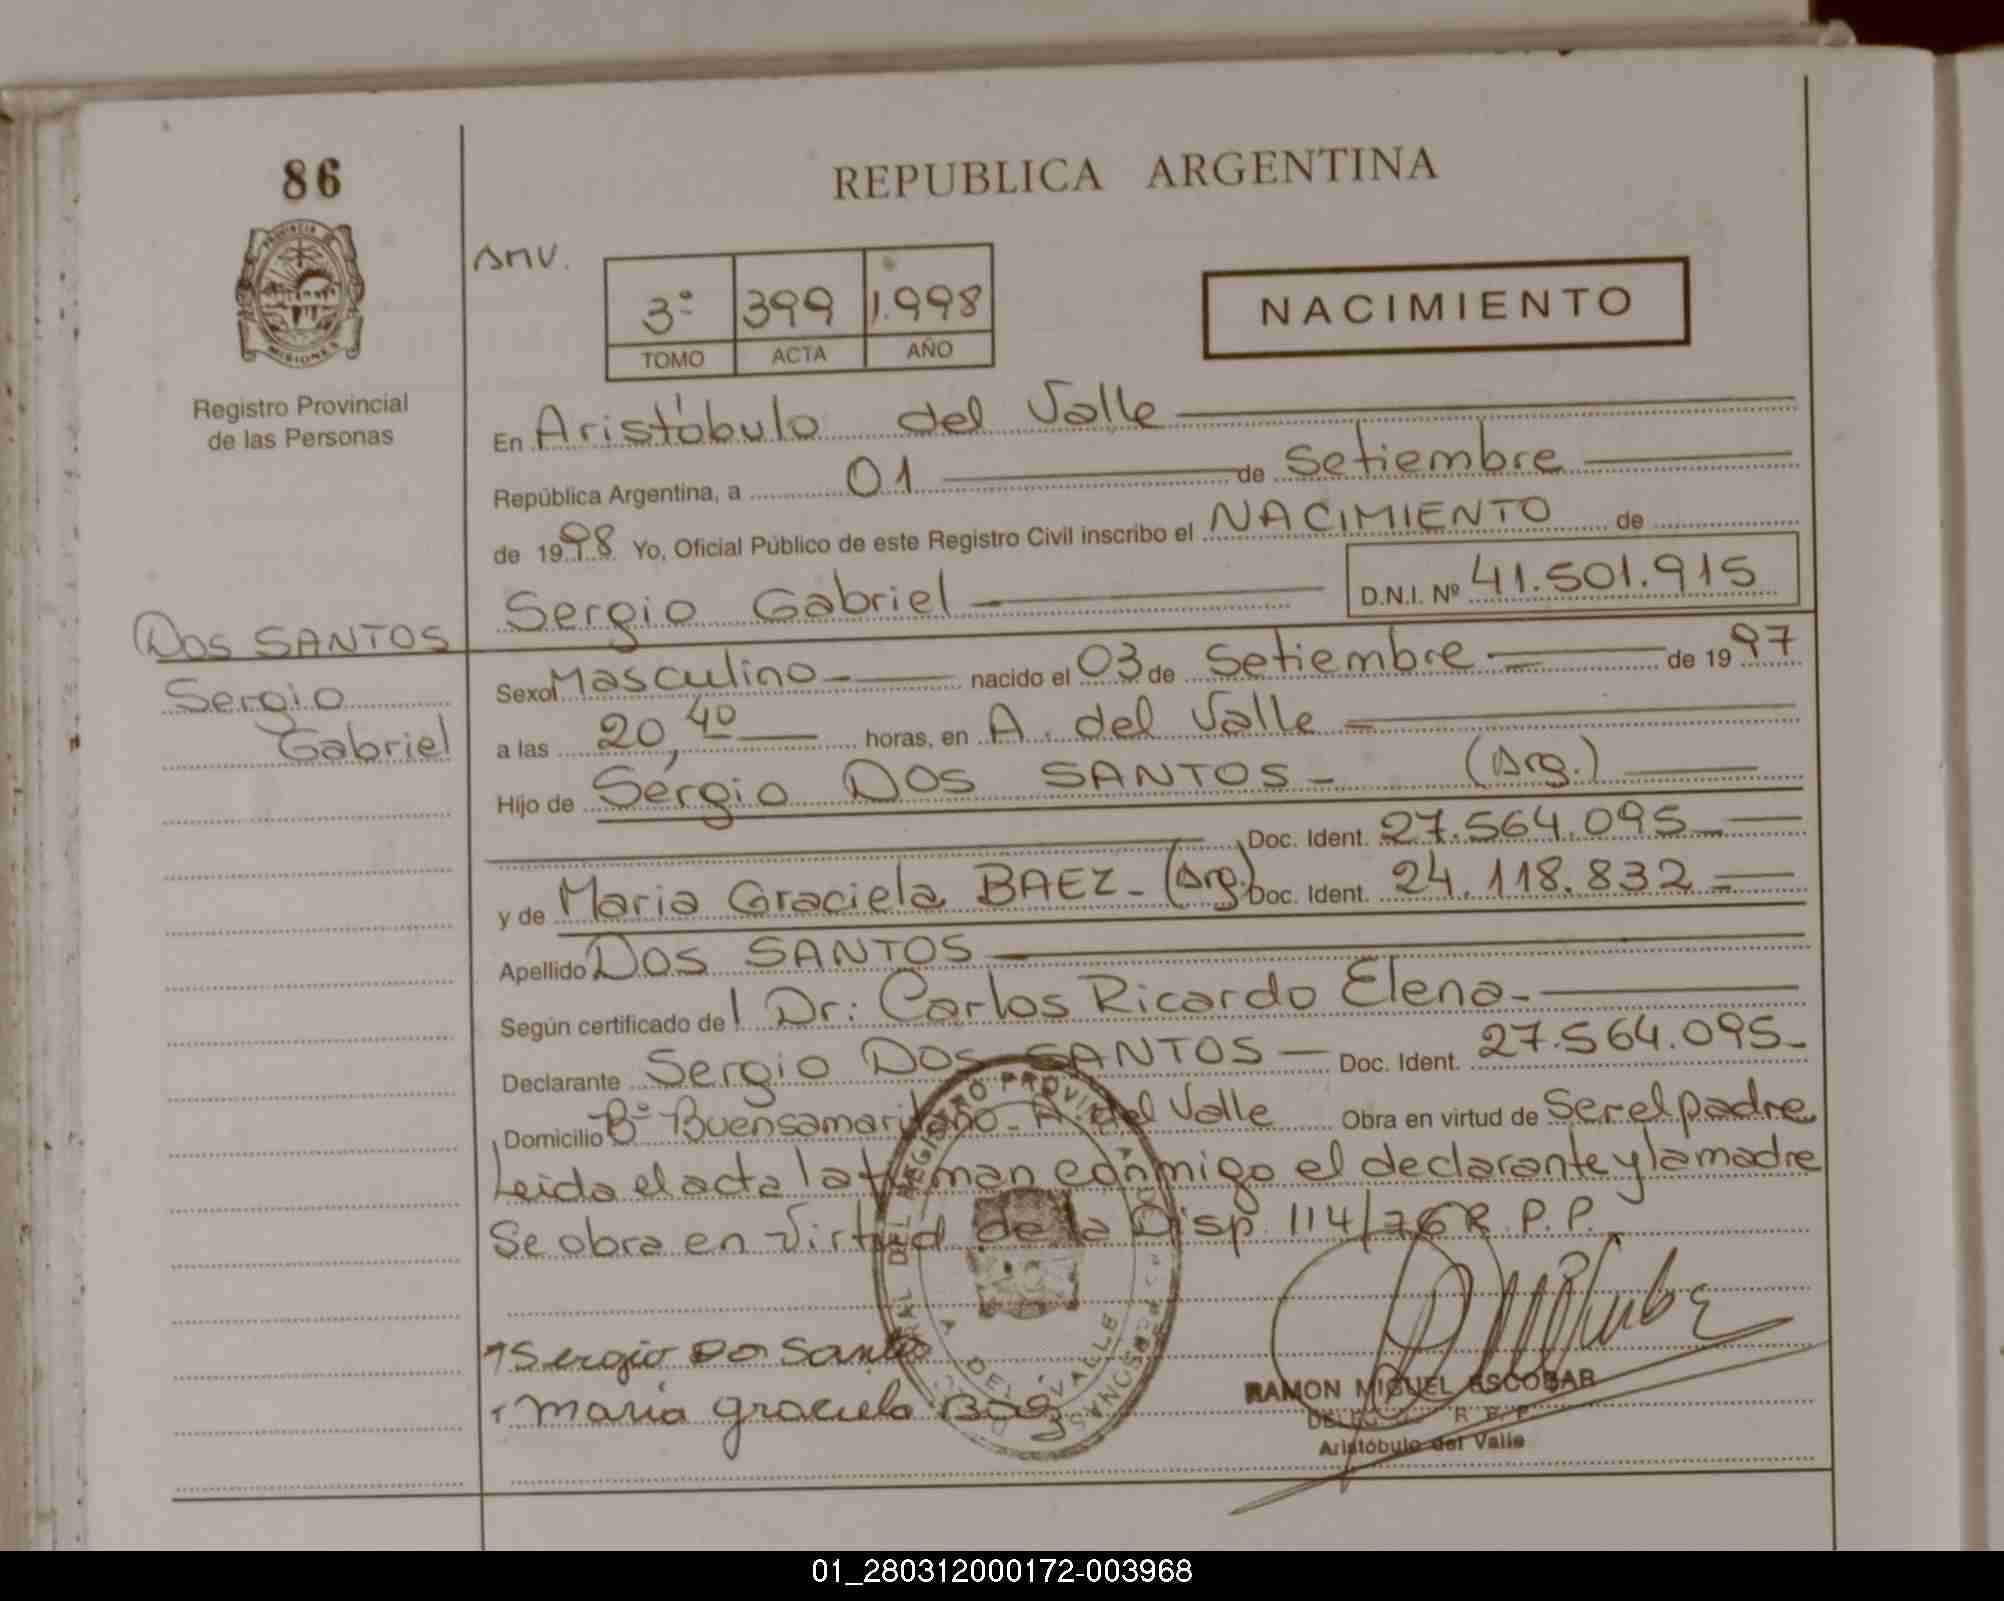 86
REPUBLICA ARGENTINA
PROVINCIA DE
MISIONES
Registro Provincial
de las Personas
Amv.
3º 399 1.998
TOMO ACTA AÑO
NACIMIENTO
En Aristóbulo del Valle
República Argentina, a 01 de Setiembre
de 1998 Yo, Oficial Público de este Registro Civil inscribo el NACIMIENTO de
Sergio Gabriel D.N.I. Nº 41.501.915
DOS SANTOS
Sergio
Gabriel
Sexo Masculino nacido el 03 de Setiembre de 1997
a las 20,40 horas, en A. del Valle
Hijo de Sergio DOS SANTOS - (Arg.)
Doc. Ident. 27.564.095
y de Maria Graciela BAEZ - (Arg.) Doc. Ident. 24.118.832
Apellido DOS SANTOS
Según certificado del Dr: Carlos Ricardo Elena -
Declarante Sergio DOS SANTOS - Doc. Ident. 27.564.095 -
Domicilio Bº Buensamaritano - A del Valle Obra en virtud de Ser el padre
Leida el acta la firman conmigo el declarante y la madre
Se obra en virtud de la Disp. 114/76 R.P.P.
Sergio Do Santos
Maria graciela Baez
RAMON MIGUEL ESCOBAR
R. P. P.
Aristóbulo del Valle
DEL REGISTRO PROVIN
A. DEL VALLE
01_280312000172-003968